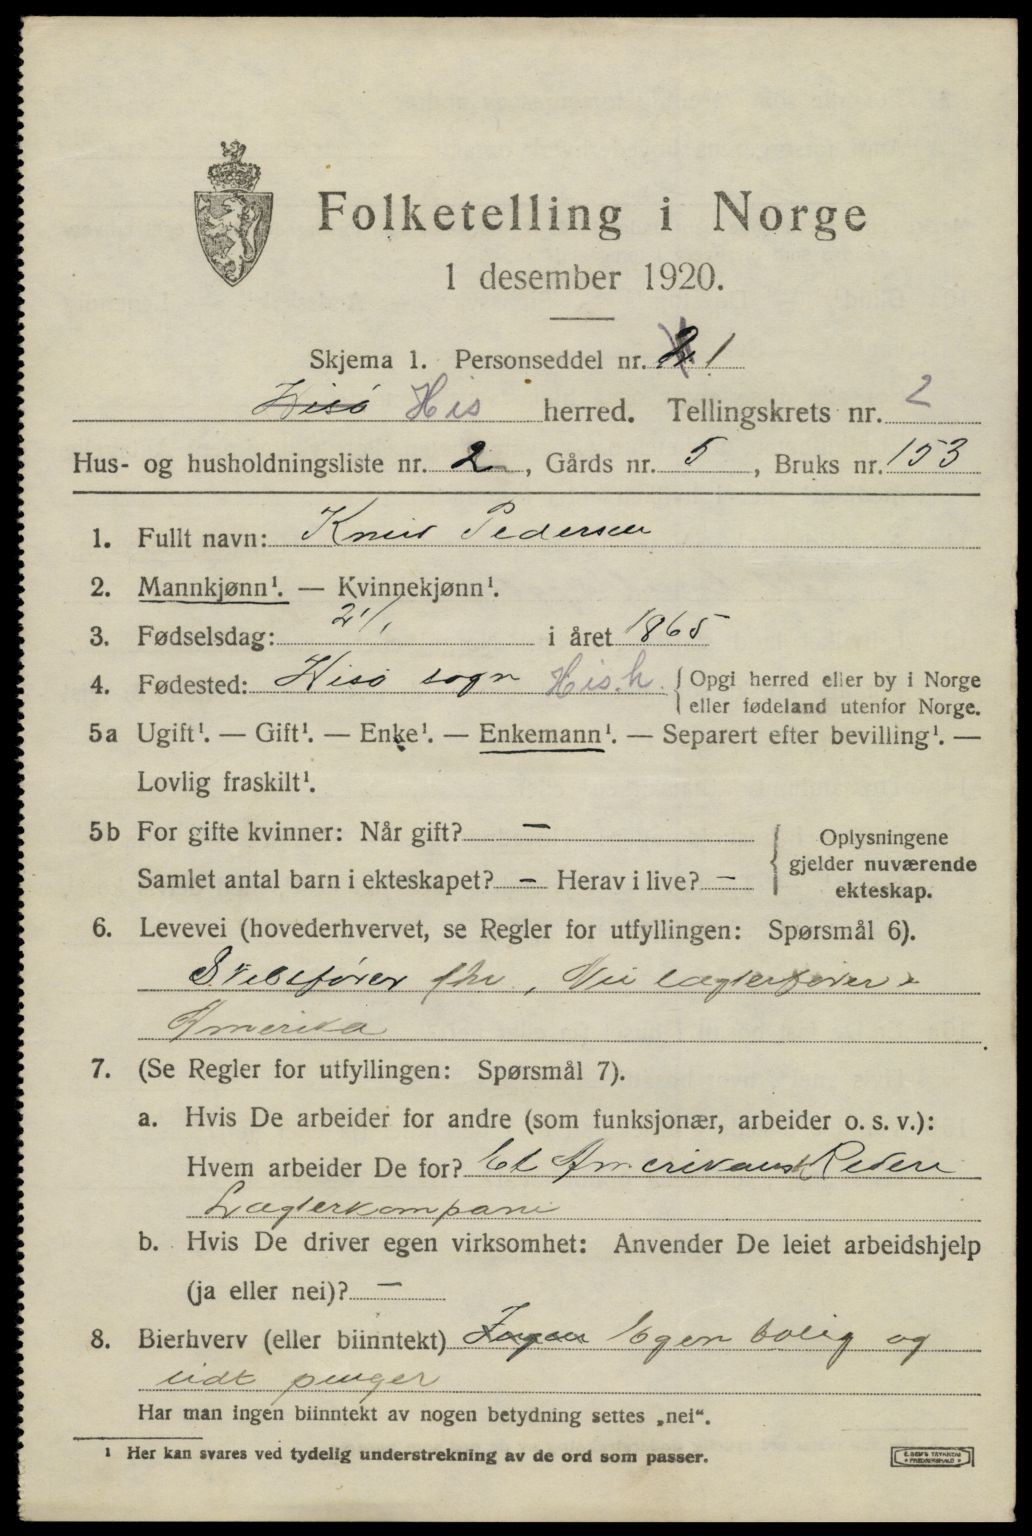 Folketelling i Norge
1 desember 1920.
Skjema 1. Personseddel nr. 1
Hisö His herred. Tellingskrets nr. 2
Hus- og husholdningsliste nr. 2, Gårds nr. 5, Bruks nr. 153
1. Fullt navn: Knud Pedersen
2. Mannkjønn¹. — Kvinnekjønn¹.
3. Fødselsdag: 21/1 i året 1865
4. Fødested: Hisö sogn His.h. Opgi herred eller by i Norge
eller fødeland utenfor Norge.
5a Ugift¹. — Gift¹. — Enke¹. — Enkemann¹. — Separert efter bevilling¹. —
Lovlig fraskilt¹.
5b For gifte kvinner: Når gift? —
Samlet antal barn i ekteskapet? — Herav i live? —
Oplysningene
gjelder nuværende
ekteskap.
6. Levevei (hovederhvervet, se Regler for utfyllingen: Spørsmål 6).
Skibsfører , Nu lægterfører i
Amerika
7. (Se Regler for utfyllingen: Spørsmål 7).
a. Hvis De arbeider for andre (som funksjonær, arbeider o. s. v.):
Hvem arbeider De for? Et Amerikansk Rederi
Lægterkompani
b. Hvis De driver egen virksomhet: Anvender De leiet arbeidshjelp
(ja eller nei)? —
8. Bierhverv (eller biinntekt) Ingen Egen bolig og
lidt penger
Har man ingen biinntekt av nogen betydning settes „nei“.
¹ Her kan svares ved tydelig understrekning av de ord som passer.